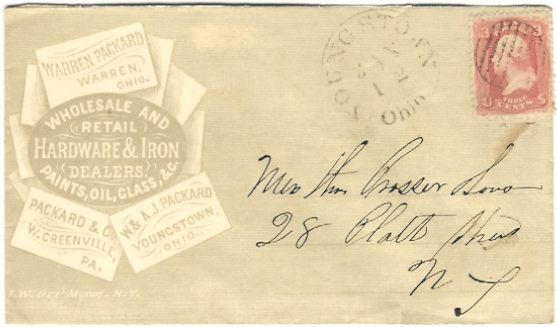 WARREN PACKARD
WARREN,
OHIO.
WHOLESALE AND
RETAIL
HARDWARE & IRON
DEALERS.
PAINTS, OIL, GLASS, &C.
PACKARD & CO
W. GREENVILLE,
PA.
W. & A. J. PACKARD
YOUNGSTOWN,
OHIO.
N.Y.
YOUNGSTOWN
Ohio
3 3
U S
THREE
CENTS
Prosser Sons
28 Platt Street
N Y